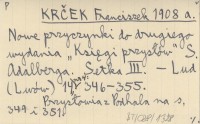 P
KRČEK Franciszek 1908 a.
Nowe przyczynki do drugiego
wydania "Księgi przysłów" S.
Adalberga. Setka III. - Lud
(Lwów) 14: 346-355.
Przysłowia z Podhala na s.
349 i 351.